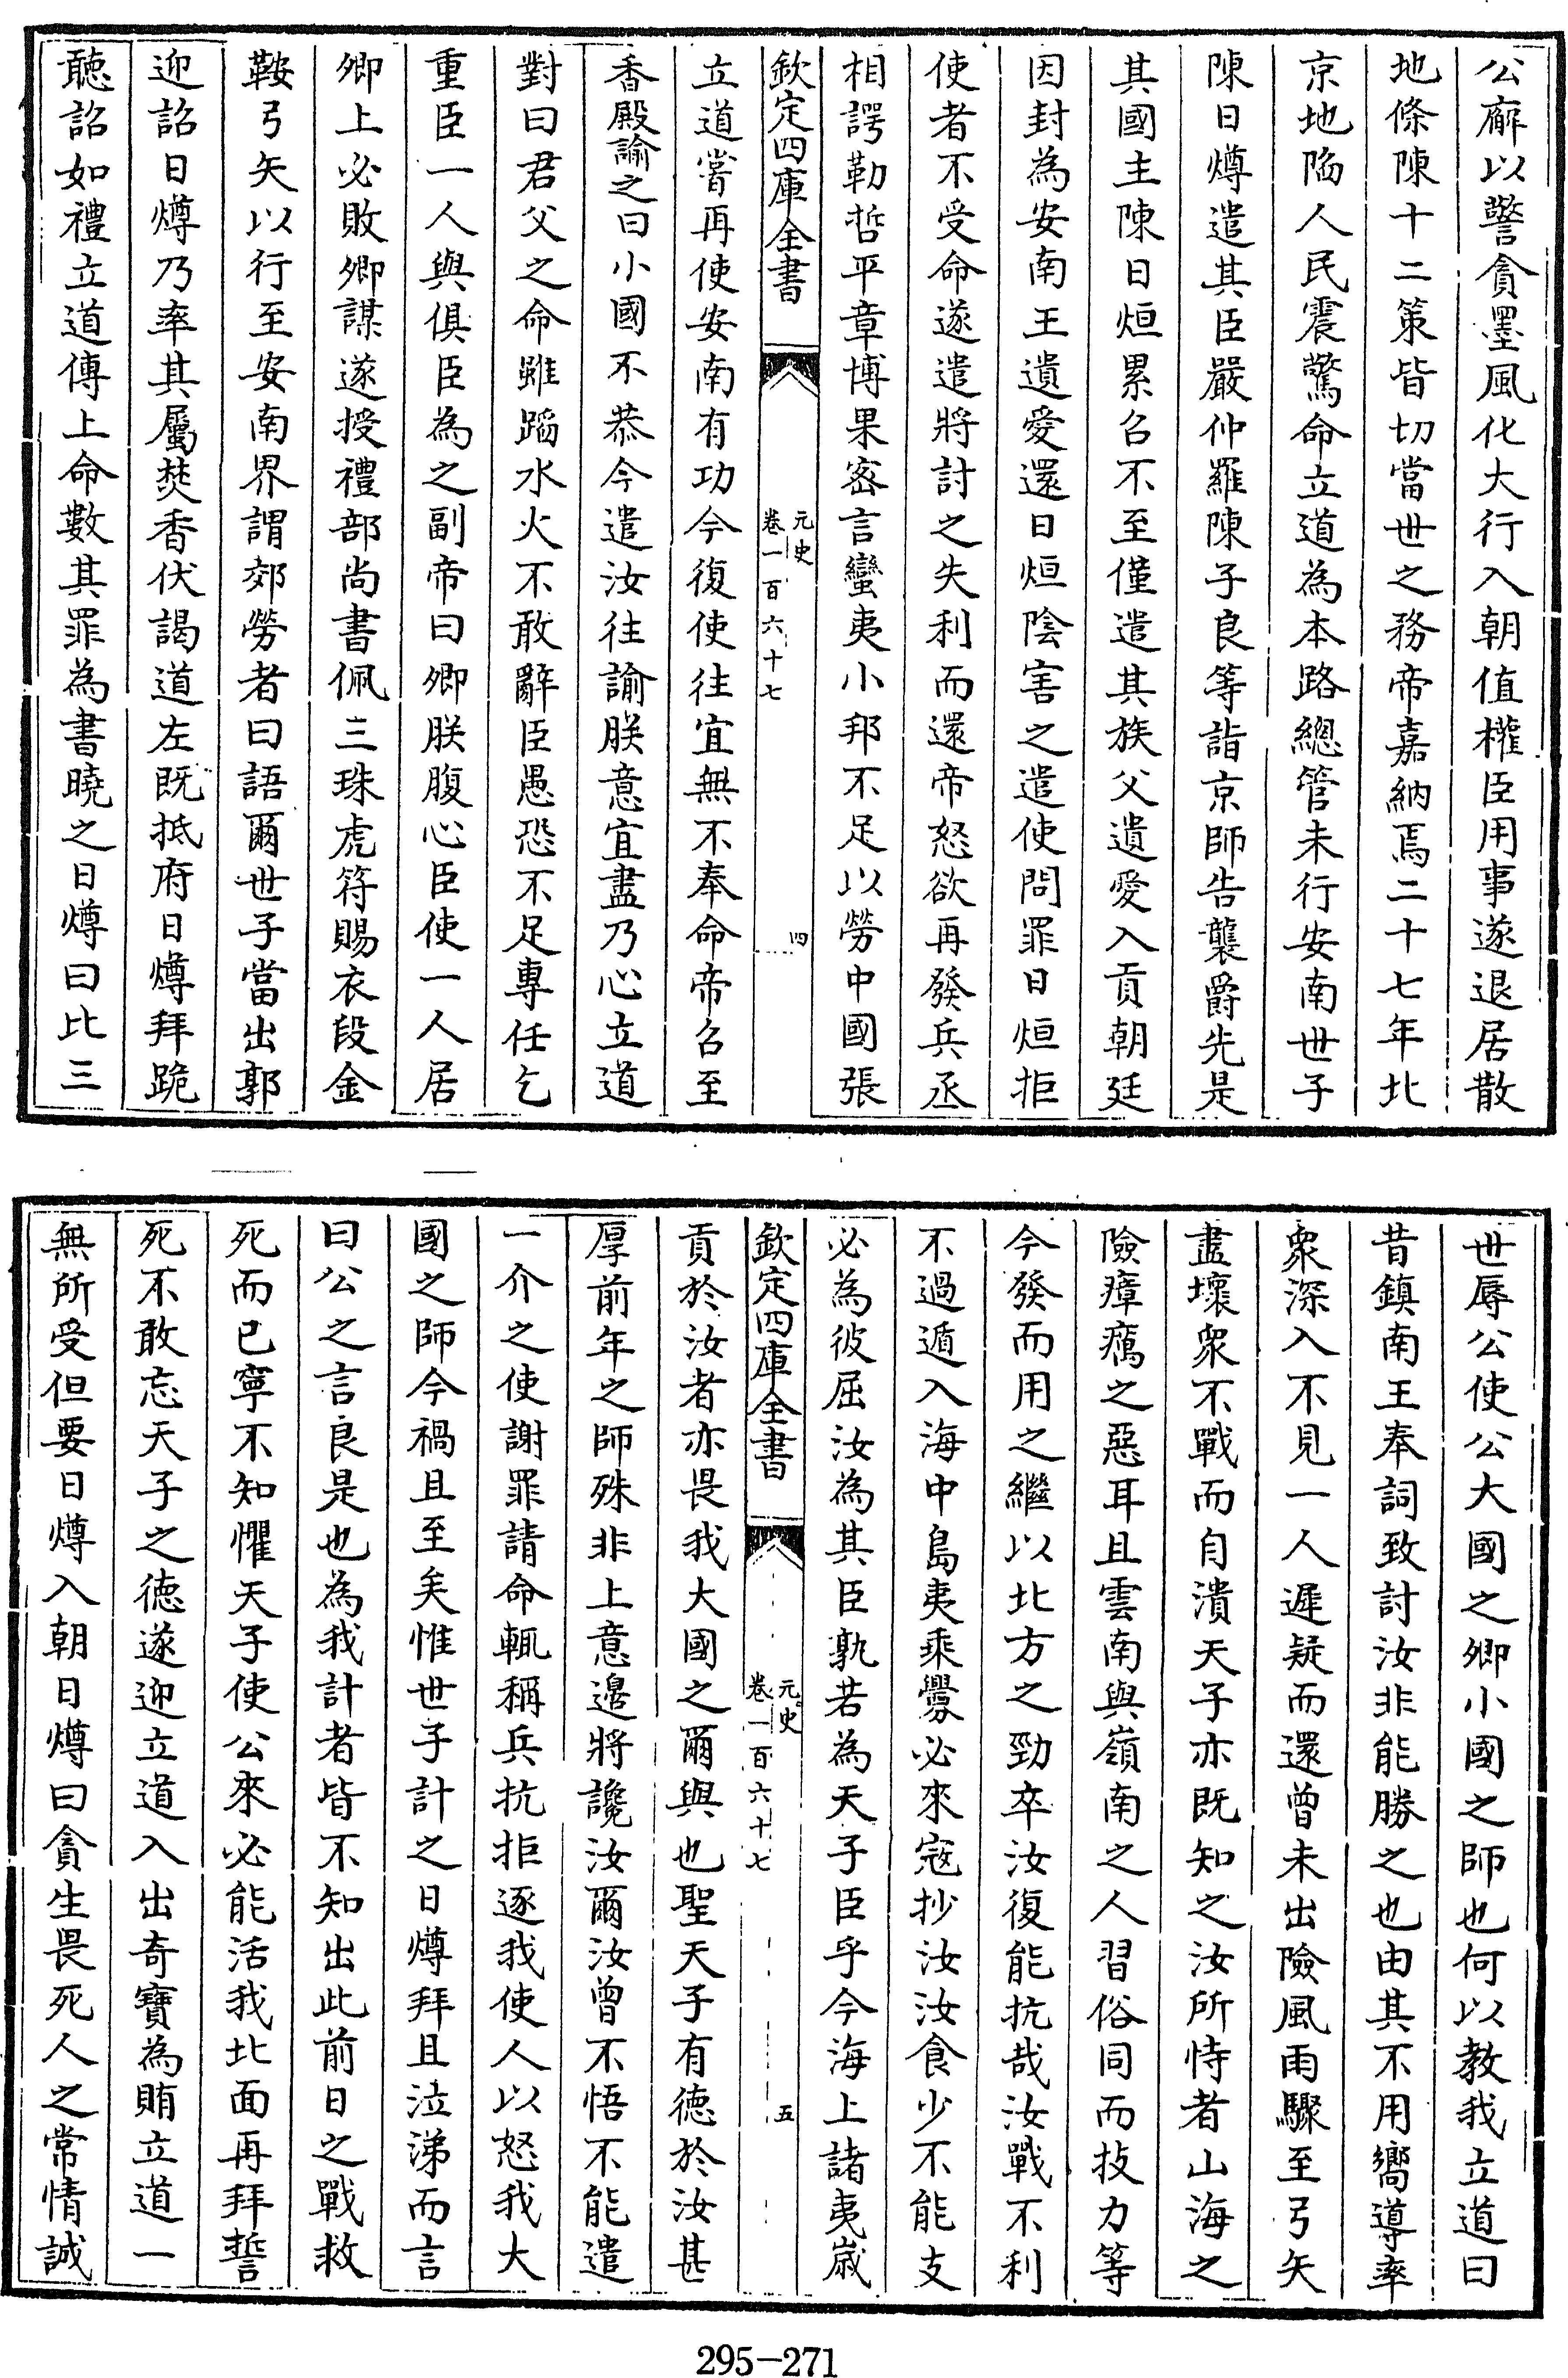 公廨以警貪墨風化大行入朝值權臣用事遂退居散
地條陳十二策皆切當世之務帝嘉納焉二十七年北
京地陷人民震驚命立道為本路總管未行安南世子
陳日燇遣其臣嚴仲羅陳子良等詣京師告襲爵先是
其國主陳日烜累召不至僅遣其族父遺愛入貢朝廷
因封為安南王遺愛還日烜陰害之遣使問罪日烜拒
使者不受命遂遣將討之失利而還帝怒欲再發兵丞
相諤勒哲平章博果密言蠻夷小邦不足以勞中國張
欽定四庫全書
元史
卷一百六十七
四
立道嘗再使安南有功今復使往宜無不奉命帝召至
香殿諭之曰小國不恭今遣汝往諭朕意宜盡乃心立道
對曰君父之命雖蹈水火不敢辭臣愚恐不足專任乞
重臣一人與俱臣為之副帝曰卿朕腹心臣使一人居
卿上必敗卿謀遂授禮部尚書佩三珠虎符賜衣段金
鞍弓矢以行至安南界謂郊勞者曰語爾世子當出郭
迎詔日燇乃率其屬焚香伏謁道左既抵府日燇拜跪
聽詔如禮立道傳上命數其罪為書曉之日燇曰比三
世辱公使公大國之卿小國之師也何以教我立道曰
昔鎮南王奉詞致討汝非能勝之也由其不用嚮導率
衆深入不見一人遲疑而還曾未出險風雨驟至弓矢
盡壞衆不戰而自潰天子亦既知之汝所恃者山海之
險瘴癘之惡耳且雲南與嶺南之人習俗同而技力等
今發而用之繼以北方之勁卒汝復能抗哉汝戰不利
不過遁入海中島夷乘釁必來寇抄汝汝食少不能支
必為彼屈汝為其臣孰若為天子臣乎今海上諸夷歲
欽定四庫全書
元史
卷一百六十七
五
貢於汝者亦畏我大國之爾與也聖天子有德於汝甚
厚前年之師殊非上意邊將讒汝爾汝曾不悟不能遣
一介之使謝罪請命輒稱兵抗拒逐我使人以怒我大
國之師今禍且至矣惟世子計之日燇拜且泣涕而言
曰公之言良是也為我計者皆不知出此前日之戰救
死而已寧不知懼天子使公來必能活我北面再拜誓
死不敢忘天子之德遂迎立道入出奇寶為賄立道一
無所受但要日燇入朝日燇曰貪生畏死人之常情誠
295-271